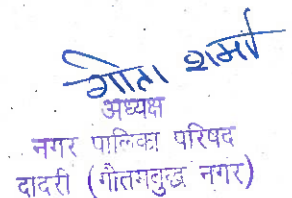 गीता शर्मा
अध्यक्ष
नगर पालिका परिषद
दादरी (गौतमबुद्ध नगर)